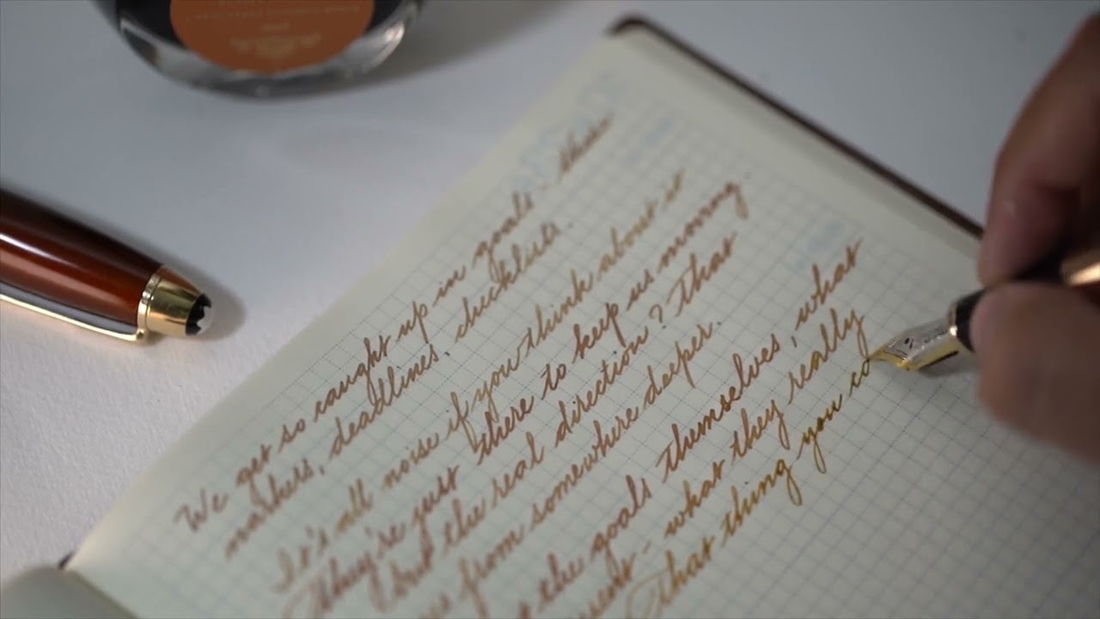 We get so caught up in goals. these
markers, deadlines, checklists.
It's all noise if you think about it
They're just there to keep us moving.
but the real direction? That
from somewhere deeper.
the goals themselves, what
what they really
That thing you co